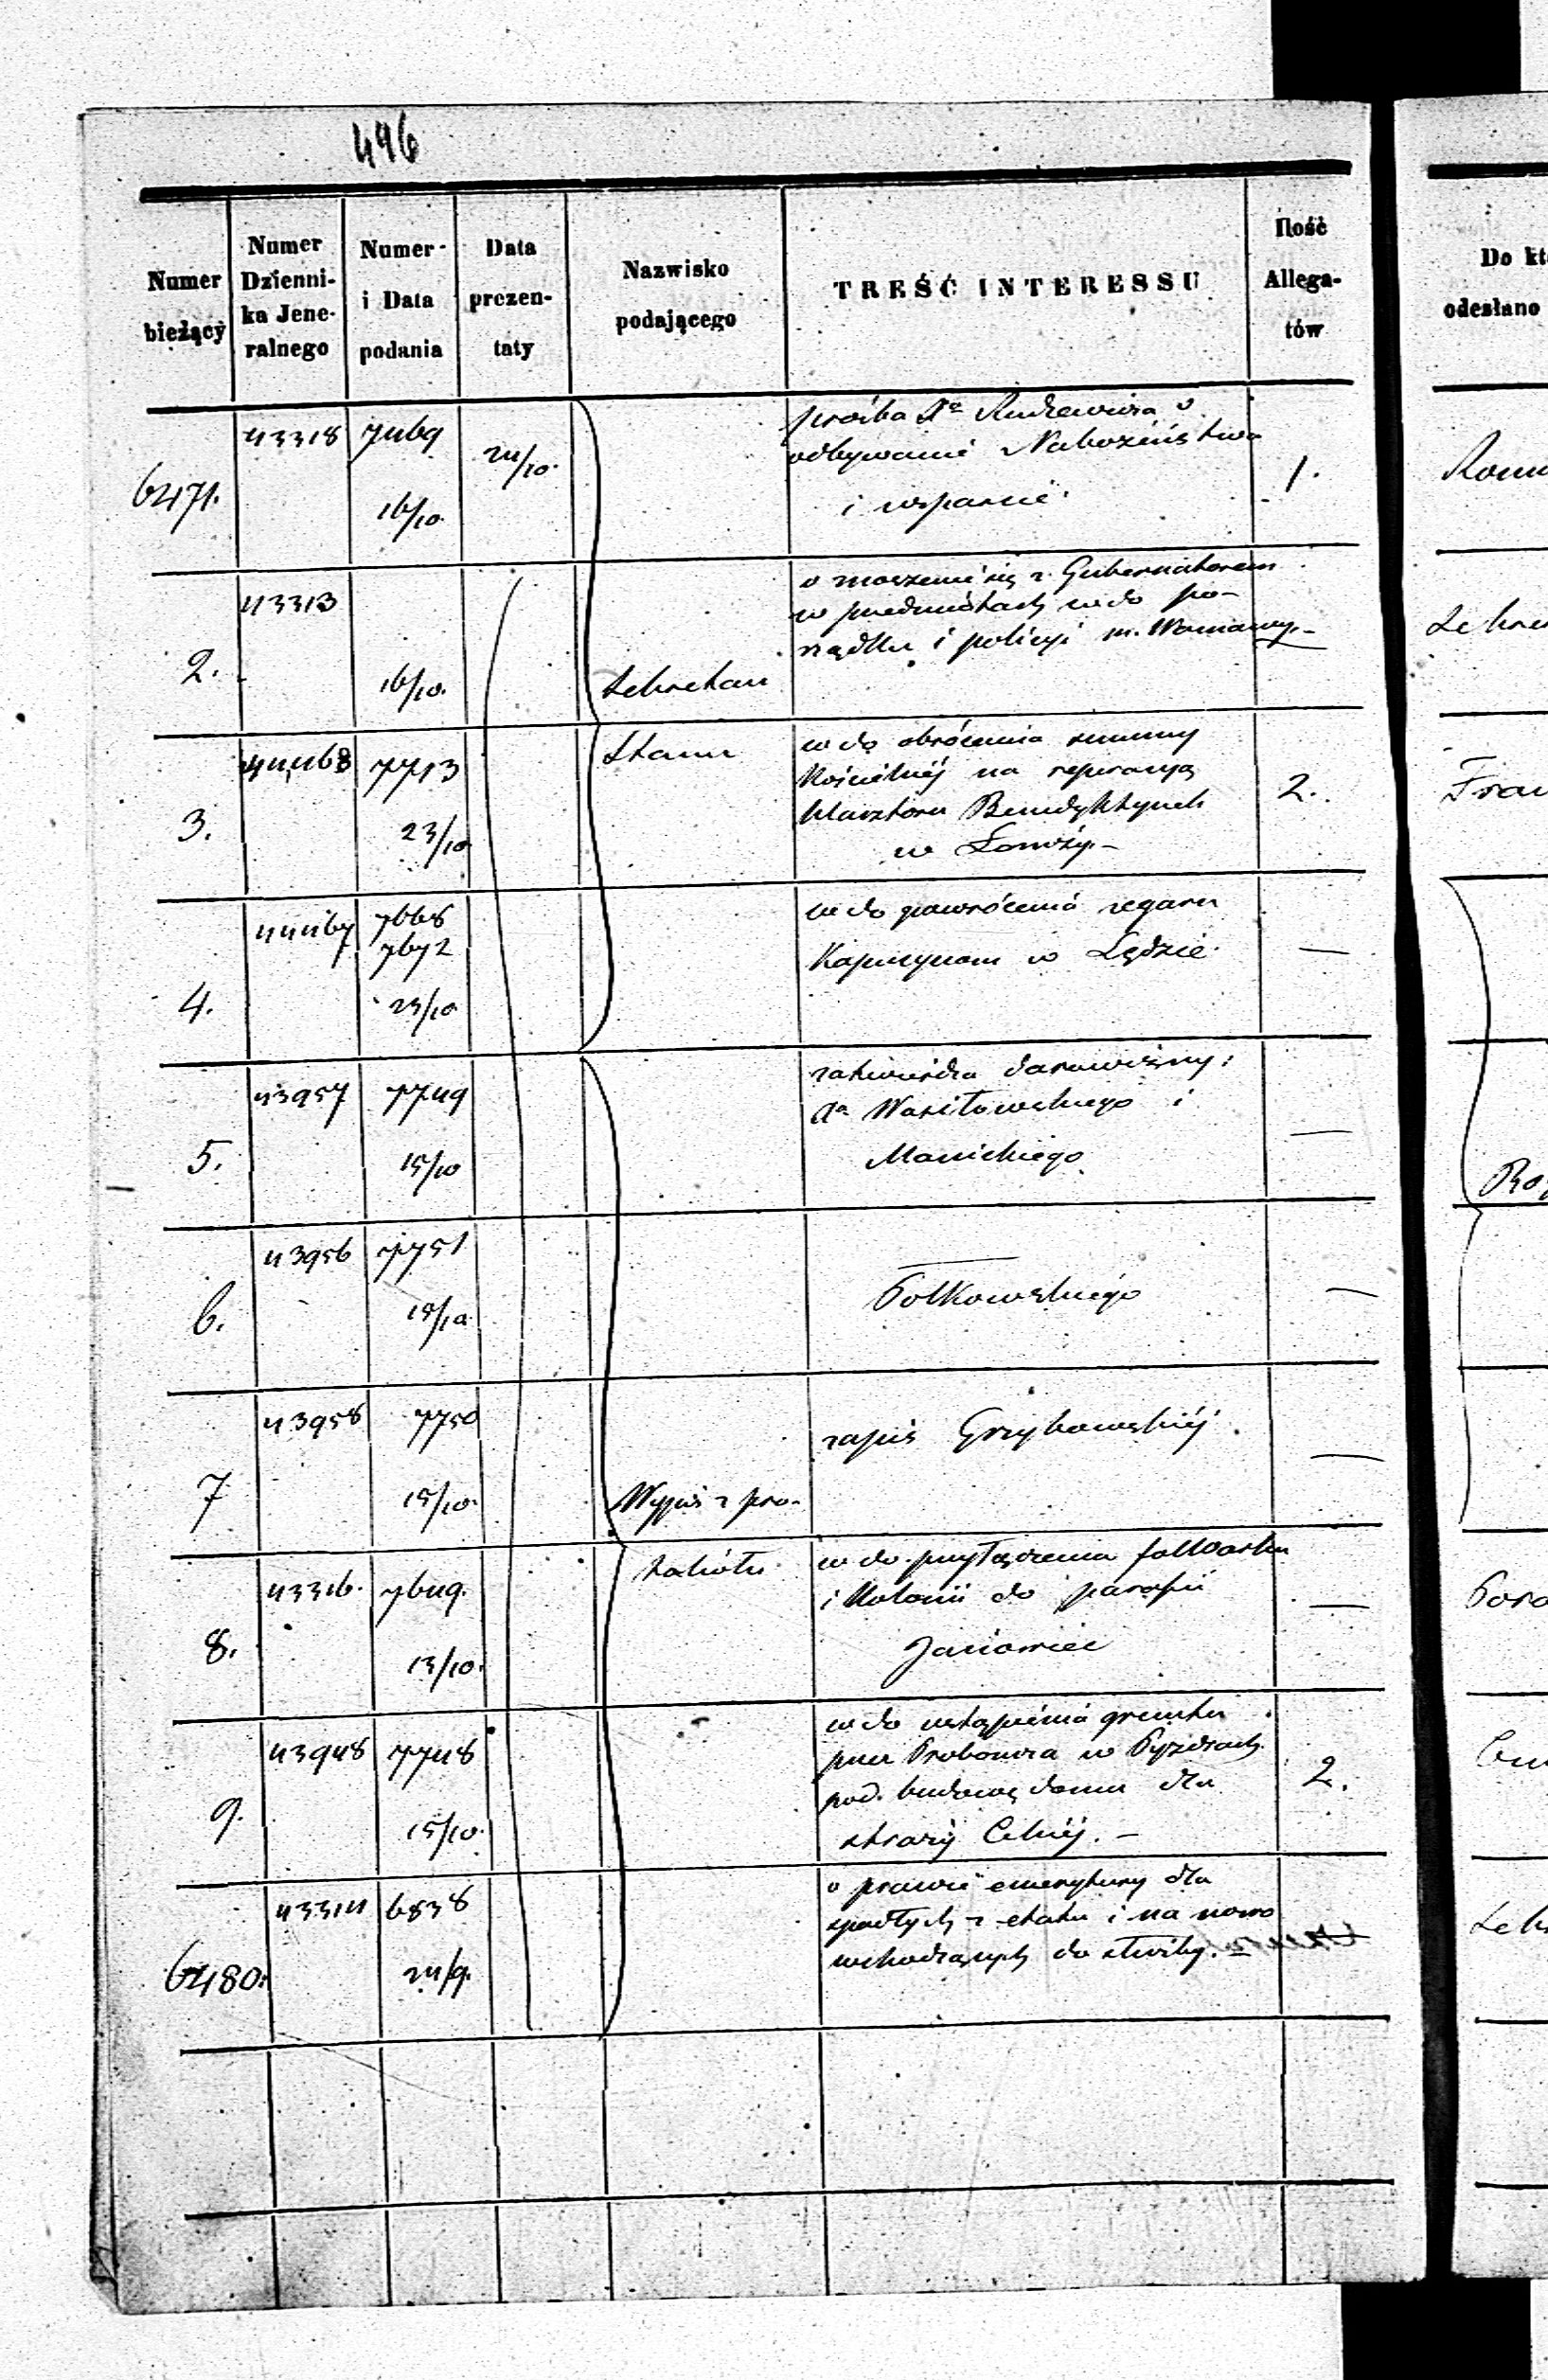 496
Numer bieżący
Numer Dzienni-ka Jene-ralnego
Numer i Data podania
Data prezen-taty
Nazwisko podającego
TREŚĆ INTERESSU
Ilość Allega-tów
Do kt
odesłano
6471.
43318
7469
16/10.
24/10.
prośba Xa Rudzewicza o
odbywanie Nabożeństwa
i wsparcie.
1.
2.
43313
16/10.
Sekretarz
o znoszeniu się z Gubernatorem
w przedmiotach wdo po-
rządku i policyi m. Warszawy.-
3.
44468
7713
23/10
Stanu
wdo obrócenia summy
Kościelnéj na reperacyą
klasztoru Benedyktynek
w Łomży.-
2.
4.
44467
7668
7672
23/10
wdo powrócenia zegaru
Kapucynom w Lędzie.
—
5.
43957
7749
15/10
zatwierdza darowizny:
Xa Wasiłowskiego i
Manickiego
—
6.
43956
7751
15/10.
—
Połkowskiego
—
7
43958
7750
15/10.
Wypis z pro-
zapis Grzybowskiéj.
—
8.
43316.
7649.
13/10.
tokółu
wdo przyłączenia folwarku
i Kolonii do parafii
Janowiec
—
9.
43948
7748
15/10.
wdo ustąpienia gruntu
przez Proboszcza w Pyzdrach
pod budowę domu dla
straży Celnéj.-
2.
6480.
43314
6838
24/9.
o prawie emerytury dla
spadłych z etatu i na nowo
wchodzących do służby.-